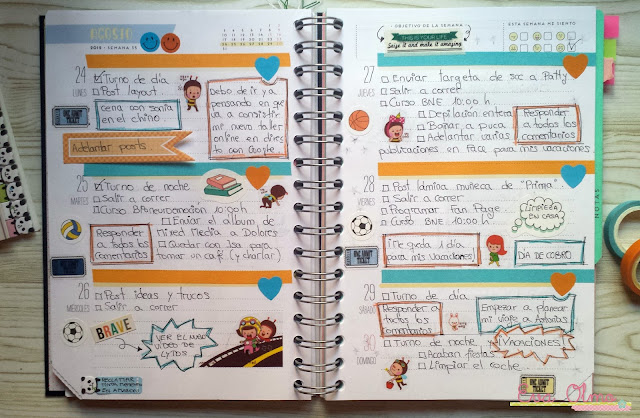 AGOSTO
2015 - SEMANA 35
24
LUNES
Turno de día
Post layout.
cena con sonia
en el chino.
Debo de ir ya
pensando en que
va a consistir
mi nuevo taller
online en direc
to con Google
ONE UNIT
TICKET
Adelantar posts
25
MARTES
Turno de noche
Salir a correr
Curso Bioneuroemoción 10:00 h
Enviar el álbum de
Mixed Media a Dolores
Responder
a todos los
comentarios
Quedar con Isa para
tomar un café (y charlar)
26
MIÉRCOLES
Post ideas y trucos
Salir a correr
BRAVE
VER EL NUEVO
VIDEO DE
LYTOS
OBJETIVO DE LA SEMANA
THIS IS YOUR LIFE
Seize it and make it amazing
ESTA SEMANA ME SIENTO
L
M
27
JUEVES
Enviar targeta de soc a Patty
Salir a correr
Curso BNE 10:00 h
Depilación entera
Bañar a puca
Adelantar varias
publicaciones en face para mis vacaciones
Responder
a todos los
comentarios
28
VIERNES
Post lámina muñeca de "Prima".
Salir a correr
Programar Fan Page
Curso BNE 10:00 h
LIMPIEZA
EN CASA
ONE UNIT
TICKET
¡Me queda 1 día
para mis vacaciones!
DIA DE COBRO
29
SÁBADO
Turno de día
Responder a
todos los
comentarios
Empezar a planear
mi viaje a Asturias
30
DOMINGO
Turno de noche y
¡VACACIONES!
Acaban fiestas
Limpiar el coche
ONE UNIT
TICKET
NOTAS